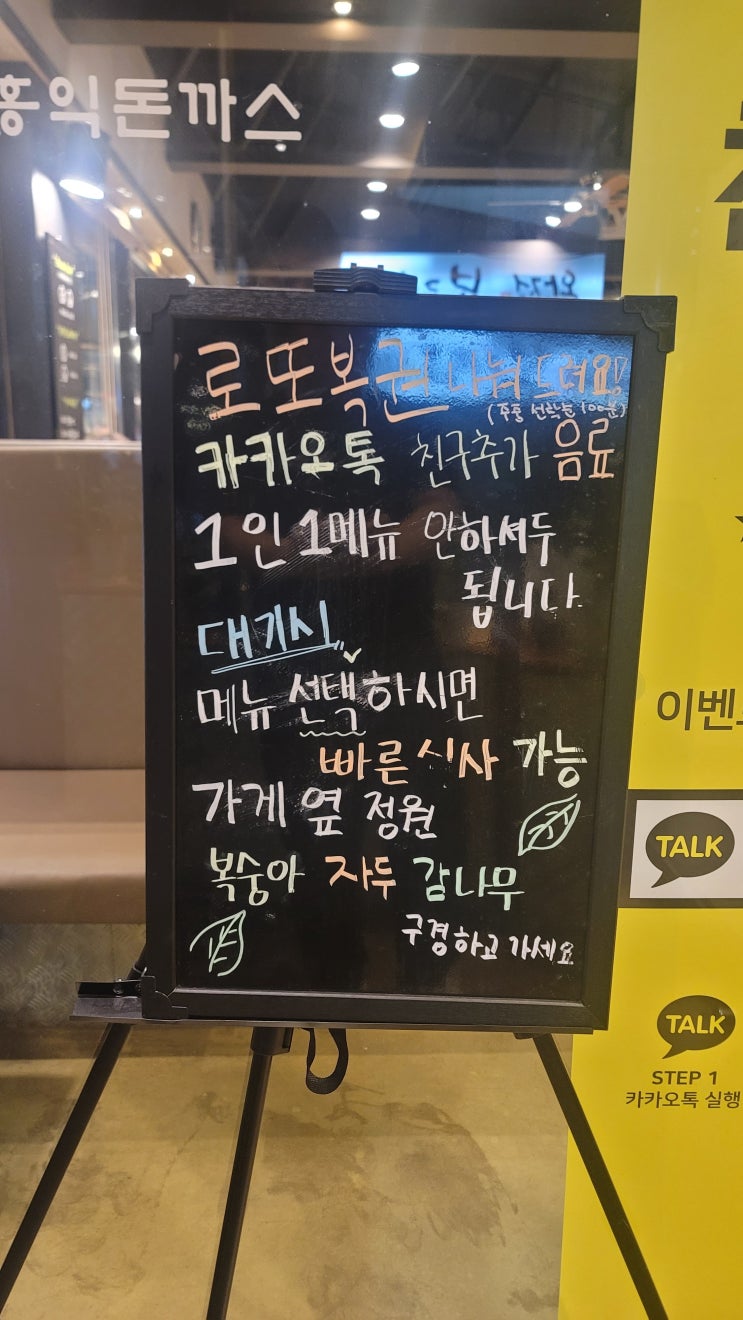 홍익돈까스
로또복권 나눠드려요!
(주중 선착순 100분)
카카오톡 친구추가 음료
1인 1메뉴 안하셔두
됩니다.
대기시
메뉴 선택하시면
빠른 식사 가능
가게 옆 정원
복숭아 자두 감나무
구경하고 가세요
이벤
TALK
TALK
STEP 1
카카오톡 실행